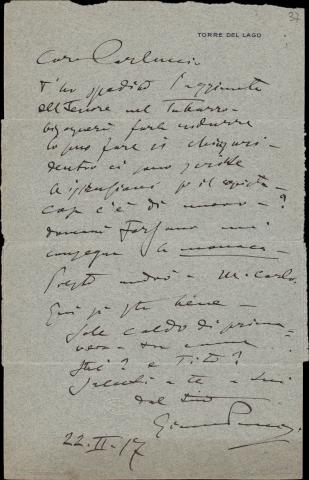 TORRE DEL LAGO
37
Caro Carluccio
t'ho spedito l'aggiunta
del Tenore nel Tabarro –
bisognerà farla ridurre
lo può fare il
dentro ci sono scritte
le istruzioni p il copista –
cosa c'è di nuovo – ?
domani Forzano mi
consegna la monaca –
Presto andrò a M. Carlo.
Qui si sta bene –
Sole caldo di prima-
vera –
e Tito?
Saluti a te a lui
dal tuo
Giacomo Puccini
22.II.17